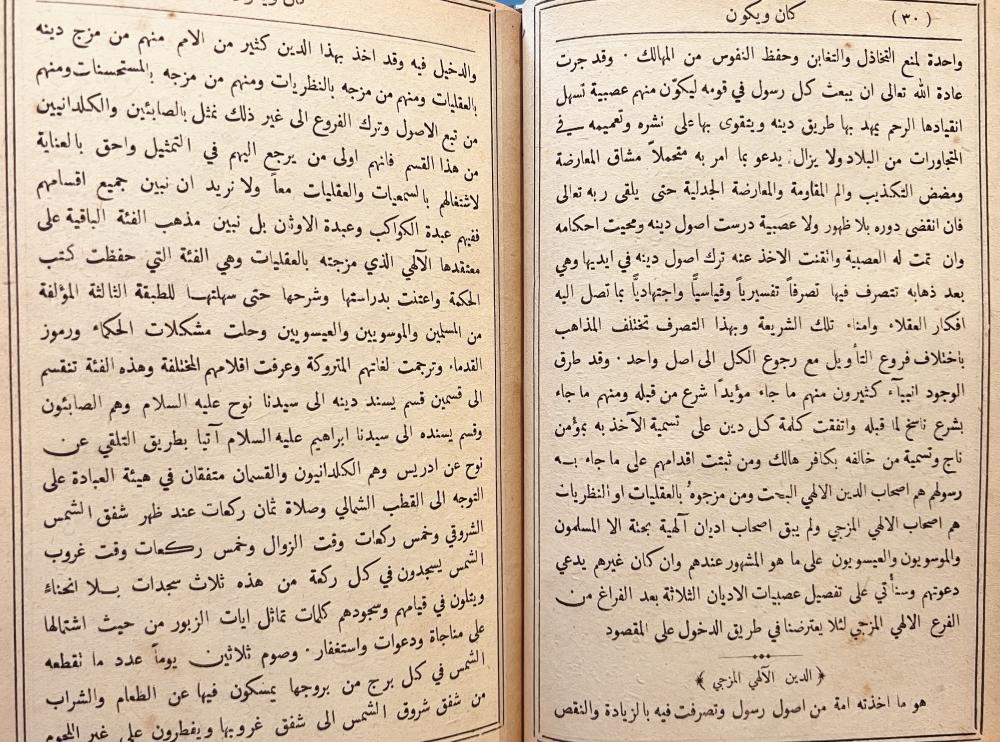 ( ٣٠ ) كان ويكون
واحدة لمنع التخاذل والتغابن وحفظ النفوس من المهالك ٠ وقد جرت
عادة الله تعالى ان يبعث كل رسول في قومه ليكوّن منهم عصبية تسهل
انقيادها الرحم يمهد بها طريق دينه ويتقوى بها على نشره وتعميمه في
المتجاورات من البلاد ولا يزال يدعو بما امر به متحملاً مشاق المعارضة
ومضض التكذيب والم المقاومة والمعارضة الجدلية حتى يلقى ربه تعالى
فان انقضى دوره بلا ظهور ولا عصبية درست اصول دينه ومحيت احكامه
وان تمت له العصبية واتقنت الاخذ عنه ترك اصول دينه في ايديها وهي
بعد ذهابه تتصرف فيها تصرفاً تفسيرياً وقياسياً واجتهادياً بما تصل اليه
افكار العقلاء وامناء تلك الشريعة وبهذا التصرف تختلف المذاهب
باختلاف فروع التأويل مع رجوع الكل الى اصل واحد ٠ وقد طرق
الوجود انبياء كثيرون منهم ما جاء مؤيدًا شرع من قبله ومنهم ما جاء
بشرع ناسخ لما قبله واتفقت كلمة كل دين على تسمية الآخذ به بمؤمن
ناج وتسمية من خالفه بكافر هالك ومن ثبتت اقدامهم على ما جاء به
رسولهم هم اصحاب الدين الالهي البحت ومن مزجوه بالعقليات او النظريات
هم اصحاب الالهي المزجي ولم يبق اصحاب اديان آلهية بحتة الا المسلمون
والموسويون والعيسويون على ما هو المشهور عندهم وان كان غيرهم يدعي
دعوتهم وسنأتي على تفصيل عصبيات الاديان الثلاثة بعد الفراغ من
الفرع الالهي المزجي لئلا يعترضنا في طريق الدخول على المقصود
﴿ الدين الآلهي المزجي ﴾
هو ما اخذته امة من اصول رسول وتصرفت فيه بالزيادة والنقص
كان ويكون
والدخيل فيه وقد اخذ بهذا الدين كثير من الامم منهم من مزج دينه
بالعقليات ومنهم من مزجه بالنظريات ومنهم من مزجه بالمستحسنات ومنهم
من تبع الاصول وترك الفروع الى غير ذلك نمثل بالصابئين والكلدانيين
من هذا القسم فانهم اولى من يرجع اليهم في التمثيل واحق بالعناية
لاشتغالهم بالسمعيات والعقليات معاً ولا نريد ان نبين جميع اقسامهم
ففيهم عبدة الكواكب وعبدة الاوثان بل نبين مذهب الفئة الباقية على
معتقدها الآلهي الذي مزجته بالعقليات وهي الفئة التي حفظت كتب
الحكمة واعتنت بدراستها وشرحها حتى سهلتها للطبقة الثالثة المؤلفة
من المسلمين والموسويين والعيسويين وحلت مشكلات الحكماء ورموز
القدماء وترجمت لغاتهم المتروكة وعرفت اقلامهم المختلفة وهذه الفئة تنقسم
الى قسمين قسم يسند دينه الى سيدنا نوح عليه السلام وهم الصابئون
وقسم يسنده الى سيدنا ابراهيم عليه السلام آتيا بطريق التلقي عن
نوح عن ادريس وهم الكلدانيون والقسمان متفقان في هيئة العبادة على
التوجه الى القطب الشمالي وصلاة ثمان ركعات عند ظهر شفق الشمس
الشروقي وخمس ركعات وقت الزوال وخمس ركعات وقت غروب
الشمس يسجدون في كل ركعة من هذه ثلاث سجدات بلا انحناء
ويتلون في قيامهم وسجودهم كلمات تماثل ايات الزبور من حيث اشتمالها
على مناجاة ودعوات واستغفار ٠ وصوم ثلاثين يوماً عدد ما تقطعه
الشمس في كل برج من بروجها يمسكون فيها عن الطعام والشراب
من شفق شروق الشمس الى شفق غروبها ويفطرون على غير اللحوم